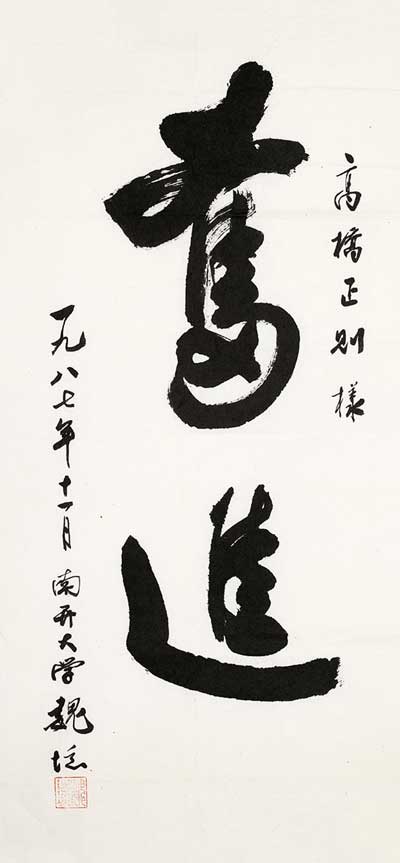 高橋正則様
奮進
一九八七年十一月南开大学魏埙